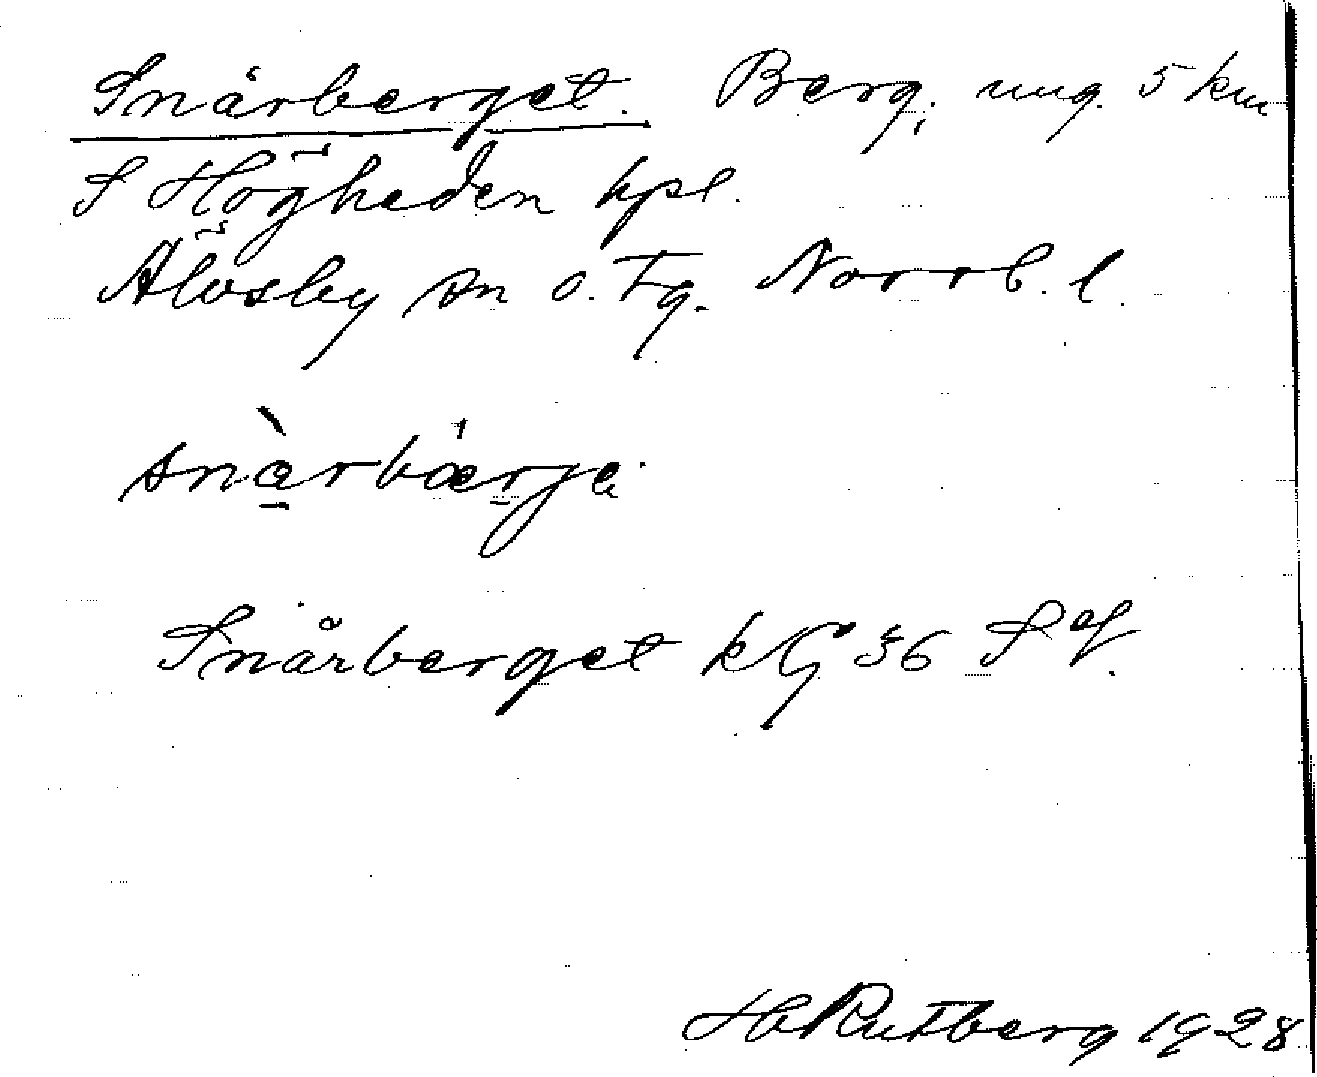 Snårberget. Berg, ung. 5 km
S Högheden hpl.
Älvsby sn o. tg. Norrb. l.
snàrbærje
Snårberget kG 36 Sf.
H Rutberg 1928